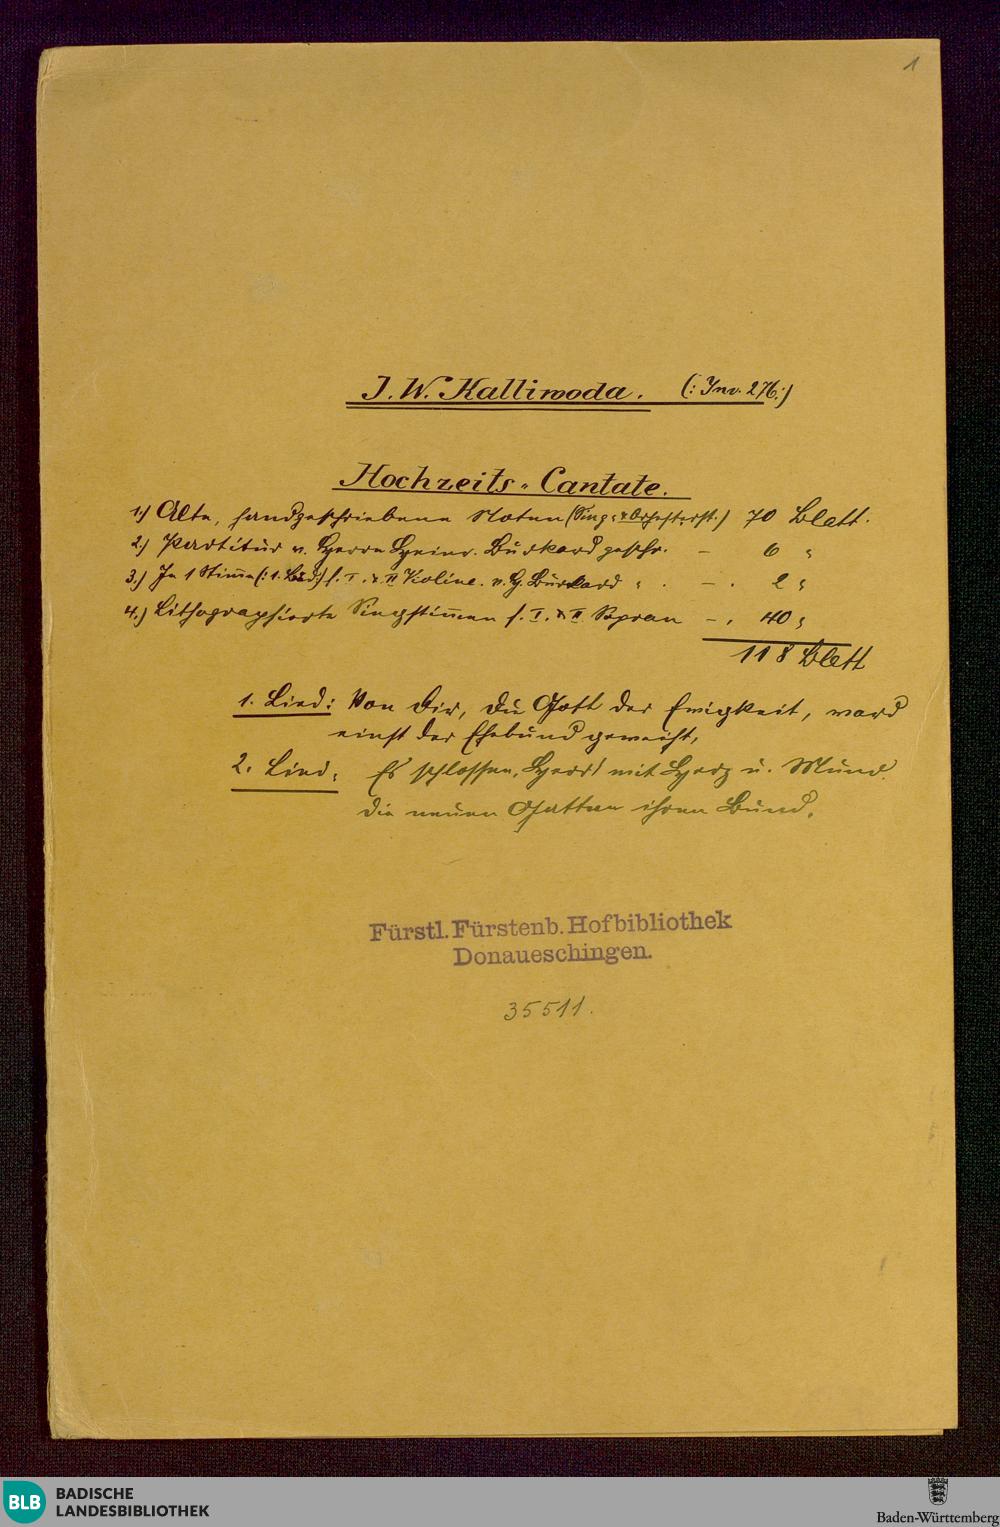 1
J. W. Kalliwoda. (: Inv. 276 :)
Hochzeits-Cantate.
1.) Alte, handgeschriebene Noten (Sing- & Orchesterst.) 70 Blatt.
2.) Partitur v. Herrn Heinr. Burkard geschr. - 6 "
3.) Je 1 Stimme (: 1. Lied :) f. I. & II Violine. v. H. Burkard " . - . 2 "
4.) Lithographierte Singstimmen f. I. & II Sopran - . 40 "
118 Blatt
1. Lied: Von Dir, Du Gott der Ewigkeit, ward
einst der Ehebund geweiht,
2. Lied: Es schlossen, Herr! mit Herz u. Mund
die neuen Gatten ihren Bund.
Fürstl. Fürstenb. Hofbibliothek
Donaueschingen.
35511.
BLB BADISCHE
LANDESBIBLIOTHEK
Baden-Württemberg